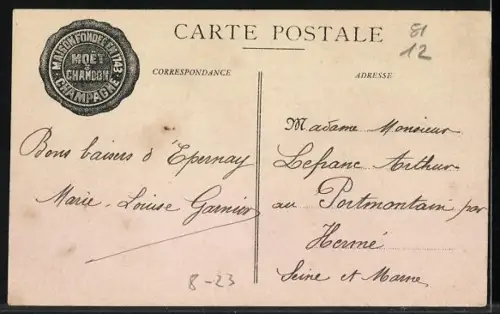 MAISON FONDÉE EN 1743
MOËT & CHANDON
CHAMPAGNE
CARTE POSTALE
81
12
CORRESPONDANCE
ADRESSE
Bons baisers d'Epernay
Marie-Louise Garnier
8-23
Madame Monsieur
Lefranc Arthur
au Portmontain par
Hermé
Seine et Marne